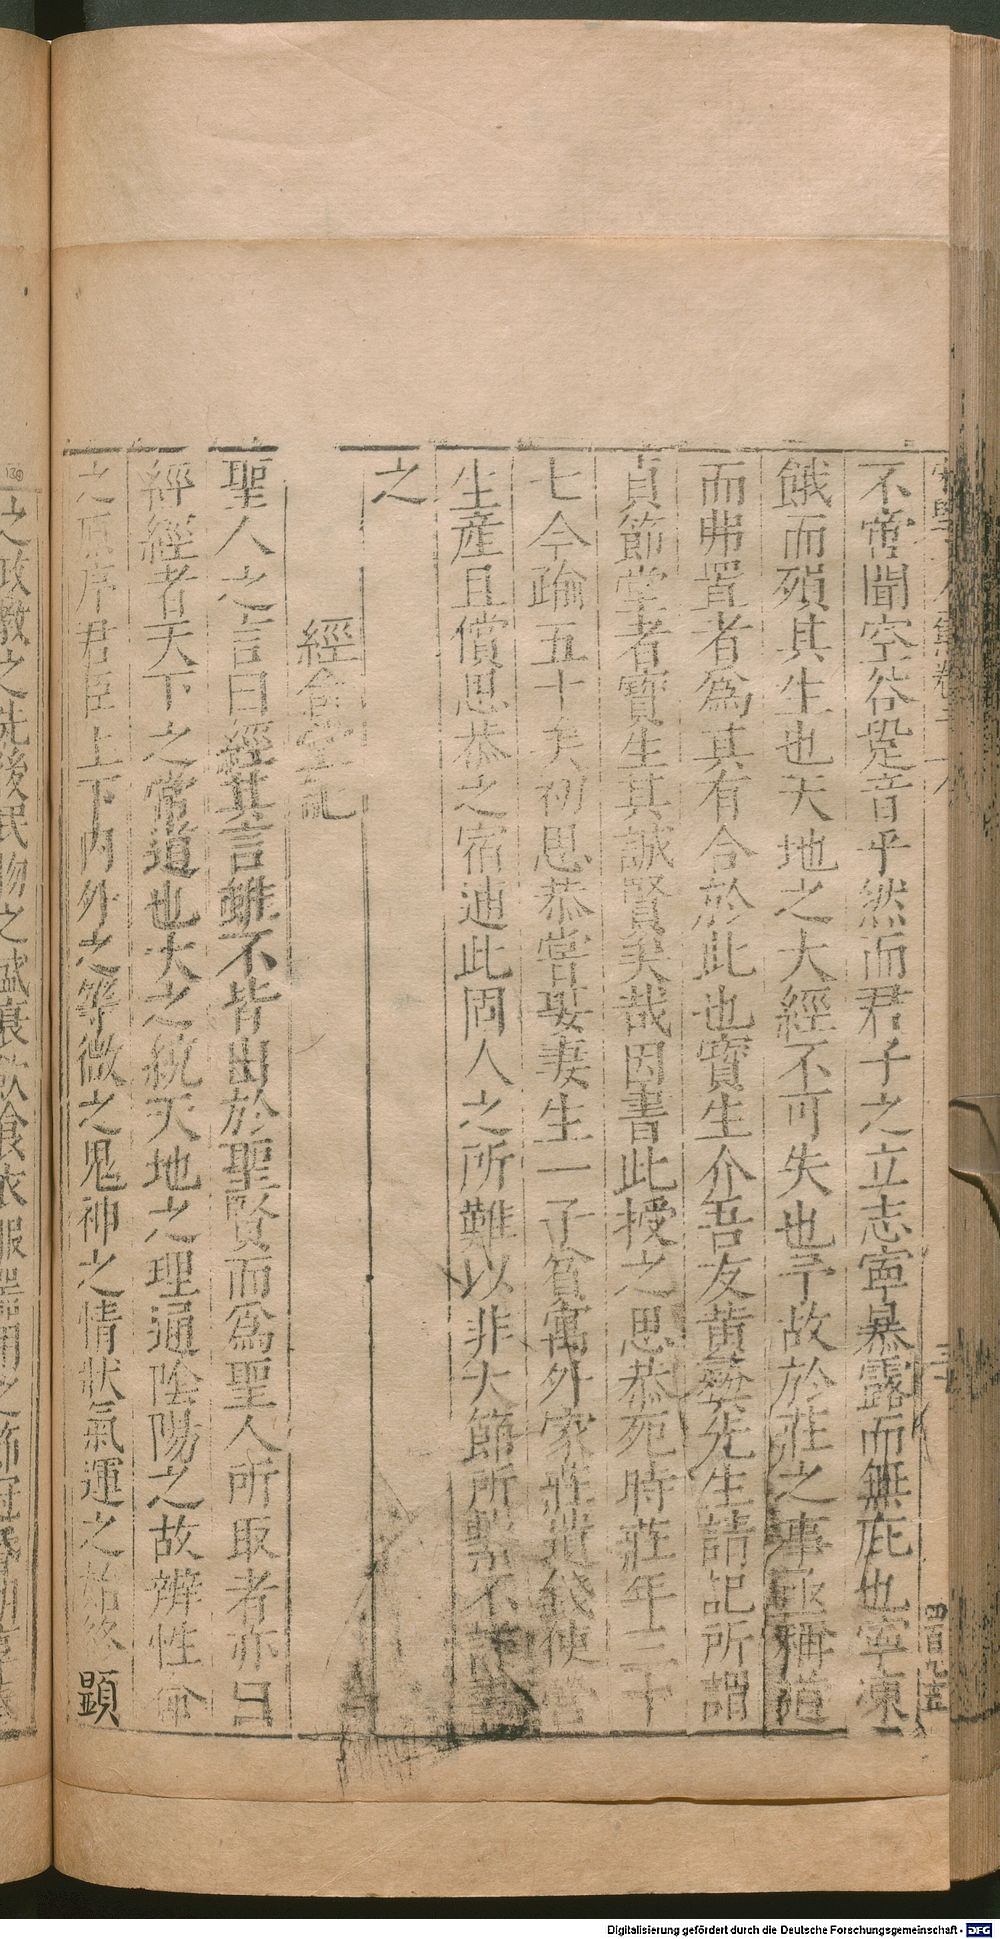 不啻聞空谷跫音乎然而君子之立志寧暴露而無庇也寧凍
餓而殞其生也天地之大經不可失也予故於莊之事亟稱道
而弗置者為其有合於此也寶生介吾友黃彝先生請記所謂
貞節堂者寶生其誠賢矣哉因書此授之思恭死時莊年二十
七今踰五十矣初思恭嘗娶妻生一子貧寓外家莊遣錢使營
生產且償思恭之宿逋此固人之所難以非大節所繫不詳書
之
經畬堂記
聖人之言曰經其言雖不皆出於聖賢而為聖人所取者亦曰
經經者天下之常道也大之統天地之理通陰陽之故辨性命
之原序君臣上下內外之等微之鬼神之情狀氣運之始終顯
之政教之先後民物之盛衰飲食衣服器用之節冠昏
四百九五
130
Digitalisierung gefördert durch die Deutsche Forschungsgemeinschaft - DFG